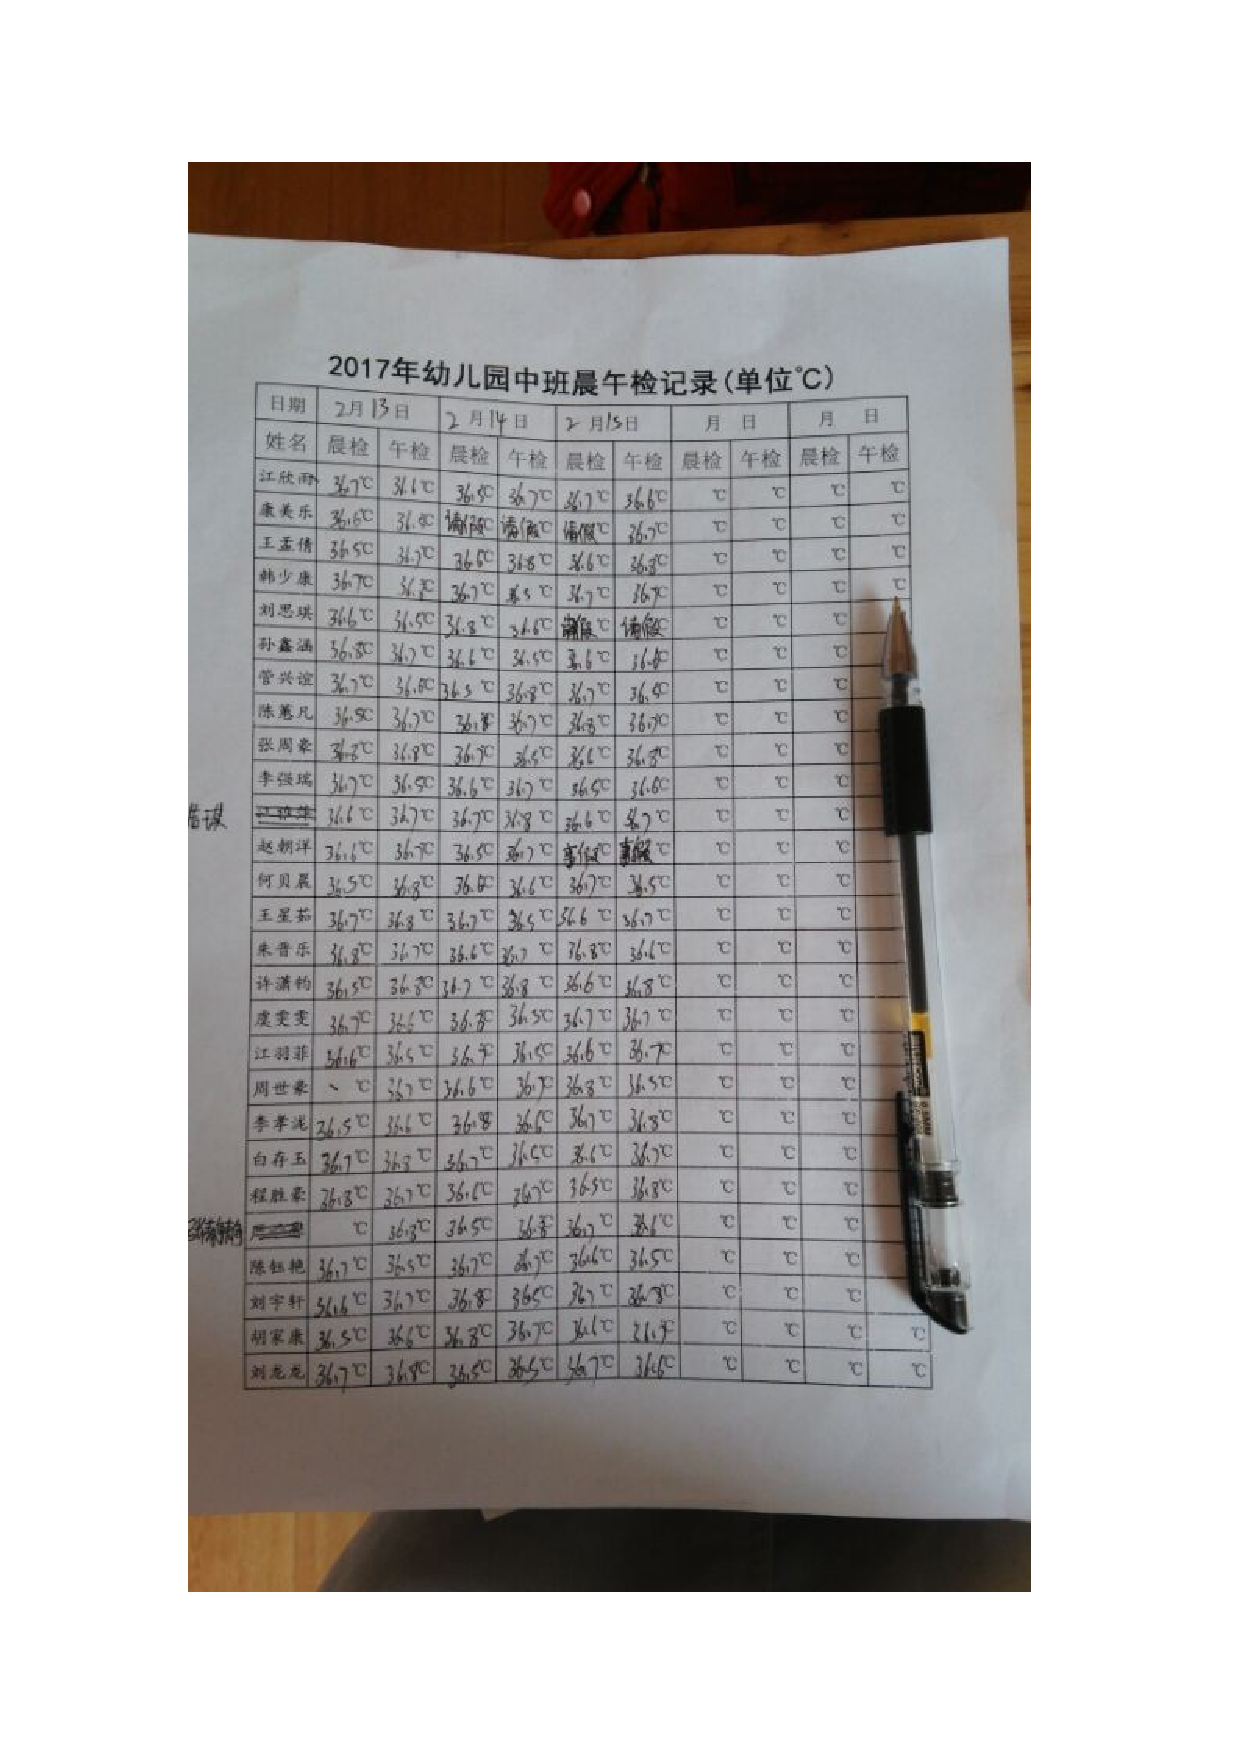 2017年幼儿园中班晨午检记录(单位℃)
日期 2月13日 2月14日 2月15日 月 日 月 日
姓名 晨检 午检 晨检 午检 晨检 午检 晨检 午检 晨检 午检
江欣雨 36.7℃ 36.6℃ 36.5℃ 36.7℃ 36.7℃ 36.6℃ ℃ ℃ ℃ ℃
康美乐 36.6℃ 36.5℃ 请假℃ 请假℃ 请假℃ 36.7℃ ℃ ℃ ℃ ℃
王孟倩 36.5℃ 36.7℃ 36.6℃ 36.8℃ 36.6℃ 36.8℃ ℃ ℃ ℃ ℃
韩少康 36.7℃ 36.8℃ 36.7℃ 36.5℃ 36.7℃ 36.7℃ ℃ ℃ ℃ ℃
刘思琪 36.6℃ 36.5℃ 36.8℃ 36.6℃ 请假℃ 请假℃ ℃ ℃ ℃
孙鑫涵 36.8℃ 36.7℃ 36.6℃ 36.5℃ 36.6℃ 36.6℃ ℃ ℃ ℃ ℃
管兴谊 36.7℃ 36.6℃ 36.5℃ 36.8℃ 36.7℃ 36.5℃ ℃ ℃ ℃
陈蕙凡 36.5℃ 36.7℃ 36.8℃ 36.7℃ 36.8℃ 36.7℃ ℃ ℃ ℃
张周豪 36.8℃ 36.8℃ 36.7℃ 36.5℃ 36.6℃ 36.8℃ ℃ ℃ ℃
李强瑞 36.7℃ 36.5℃ 36.6℃ 36.7℃ 36.5℃ 36.6℃ ℃ ℃ ℃
36.6℃ 36.7℃ 36.7℃ 36.8℃ 36.6℃ 36.7℃ ℃ ℃ ℃
赵朝洋 36.6℃ 36.7℃ 36.5℃ 36.7℃ 事假℃ 事假℃ ℃ ℃ ℃
何贝晨 36.5℃ 36.8℃ 36.6℃ 36.6℃ 36.7℃ 36.5℃ ℃ ℃ ℃
王星茹 36.7℃ 36.8℃ 36.7℃ 36.5℃ 36.6℃ 36.7℃ ℃ ℃ ℃
朱晋乐 36.8℃ 36.7℃ 36.6℃ 36.7℃ 36.8℃ 36.6℃ ℃ ℃ ℃
许潇钧 36.5℃ 36.8℃ 36.7℃ 36.8℃ 36.6℃ 36.8℃ ℃ ℃ ℃
虞雯雯 36.7℃ 36.6℃ 36.8℃ 36.5℃ 36.7℃ 36.7℃ ℃ ℃ ℃
江羽菲 36.6℃ 36.5℃ 36.7℃ 36.5℃ 36.6℃ 36.7℃ ℃ ℃ ℃
周世豪 、℃ 36.7℃ 36.6℃ 36.7℃ 36.8℃ 36.5℃ ℃ ℃ ℃
李孝泷 36.5℃ 36.6℃ 36.8 36.6℃ 36.7℃ 36.8℃ ℃ ℃ ℃
白存玉 36.7℃ 36.8℃ 36.7℃ 36.5℃ 36.6℃ 36.7℃ ℃ ℃ ℃
程胜豪 36.8℃ 36.7℃ 36.6℃ 36.7℃ 36.5℃ 36.8℃ ℃ ℃ ℃
℃ 36.8℃ 36.5℃ 36.8℃ 36.7℃ 36.6℃ ℃ ℃ ℃
陈钰艳 36.7℃ 36.5℃ 36.7℃ 36.7℃ 36.6℃ 36.5℃ ℃ ℃ ℃
刘宇轩 36.6℃ 36.7℃ 36.8℃ 36.5℃ 36.7℃ 36.8℃ ℃ ℃ ℃
胡家康 36.5℃ 36.6℃ 36.8℃ 36.7℃ 36.6℃ ℃ ℃ ℃ ℃
刘龙龙 36.7℃ 36.8℃ 36.5℃ 36.5℃ 36.7℃ 36.6℃ ℃ ℃ ℃ ℃